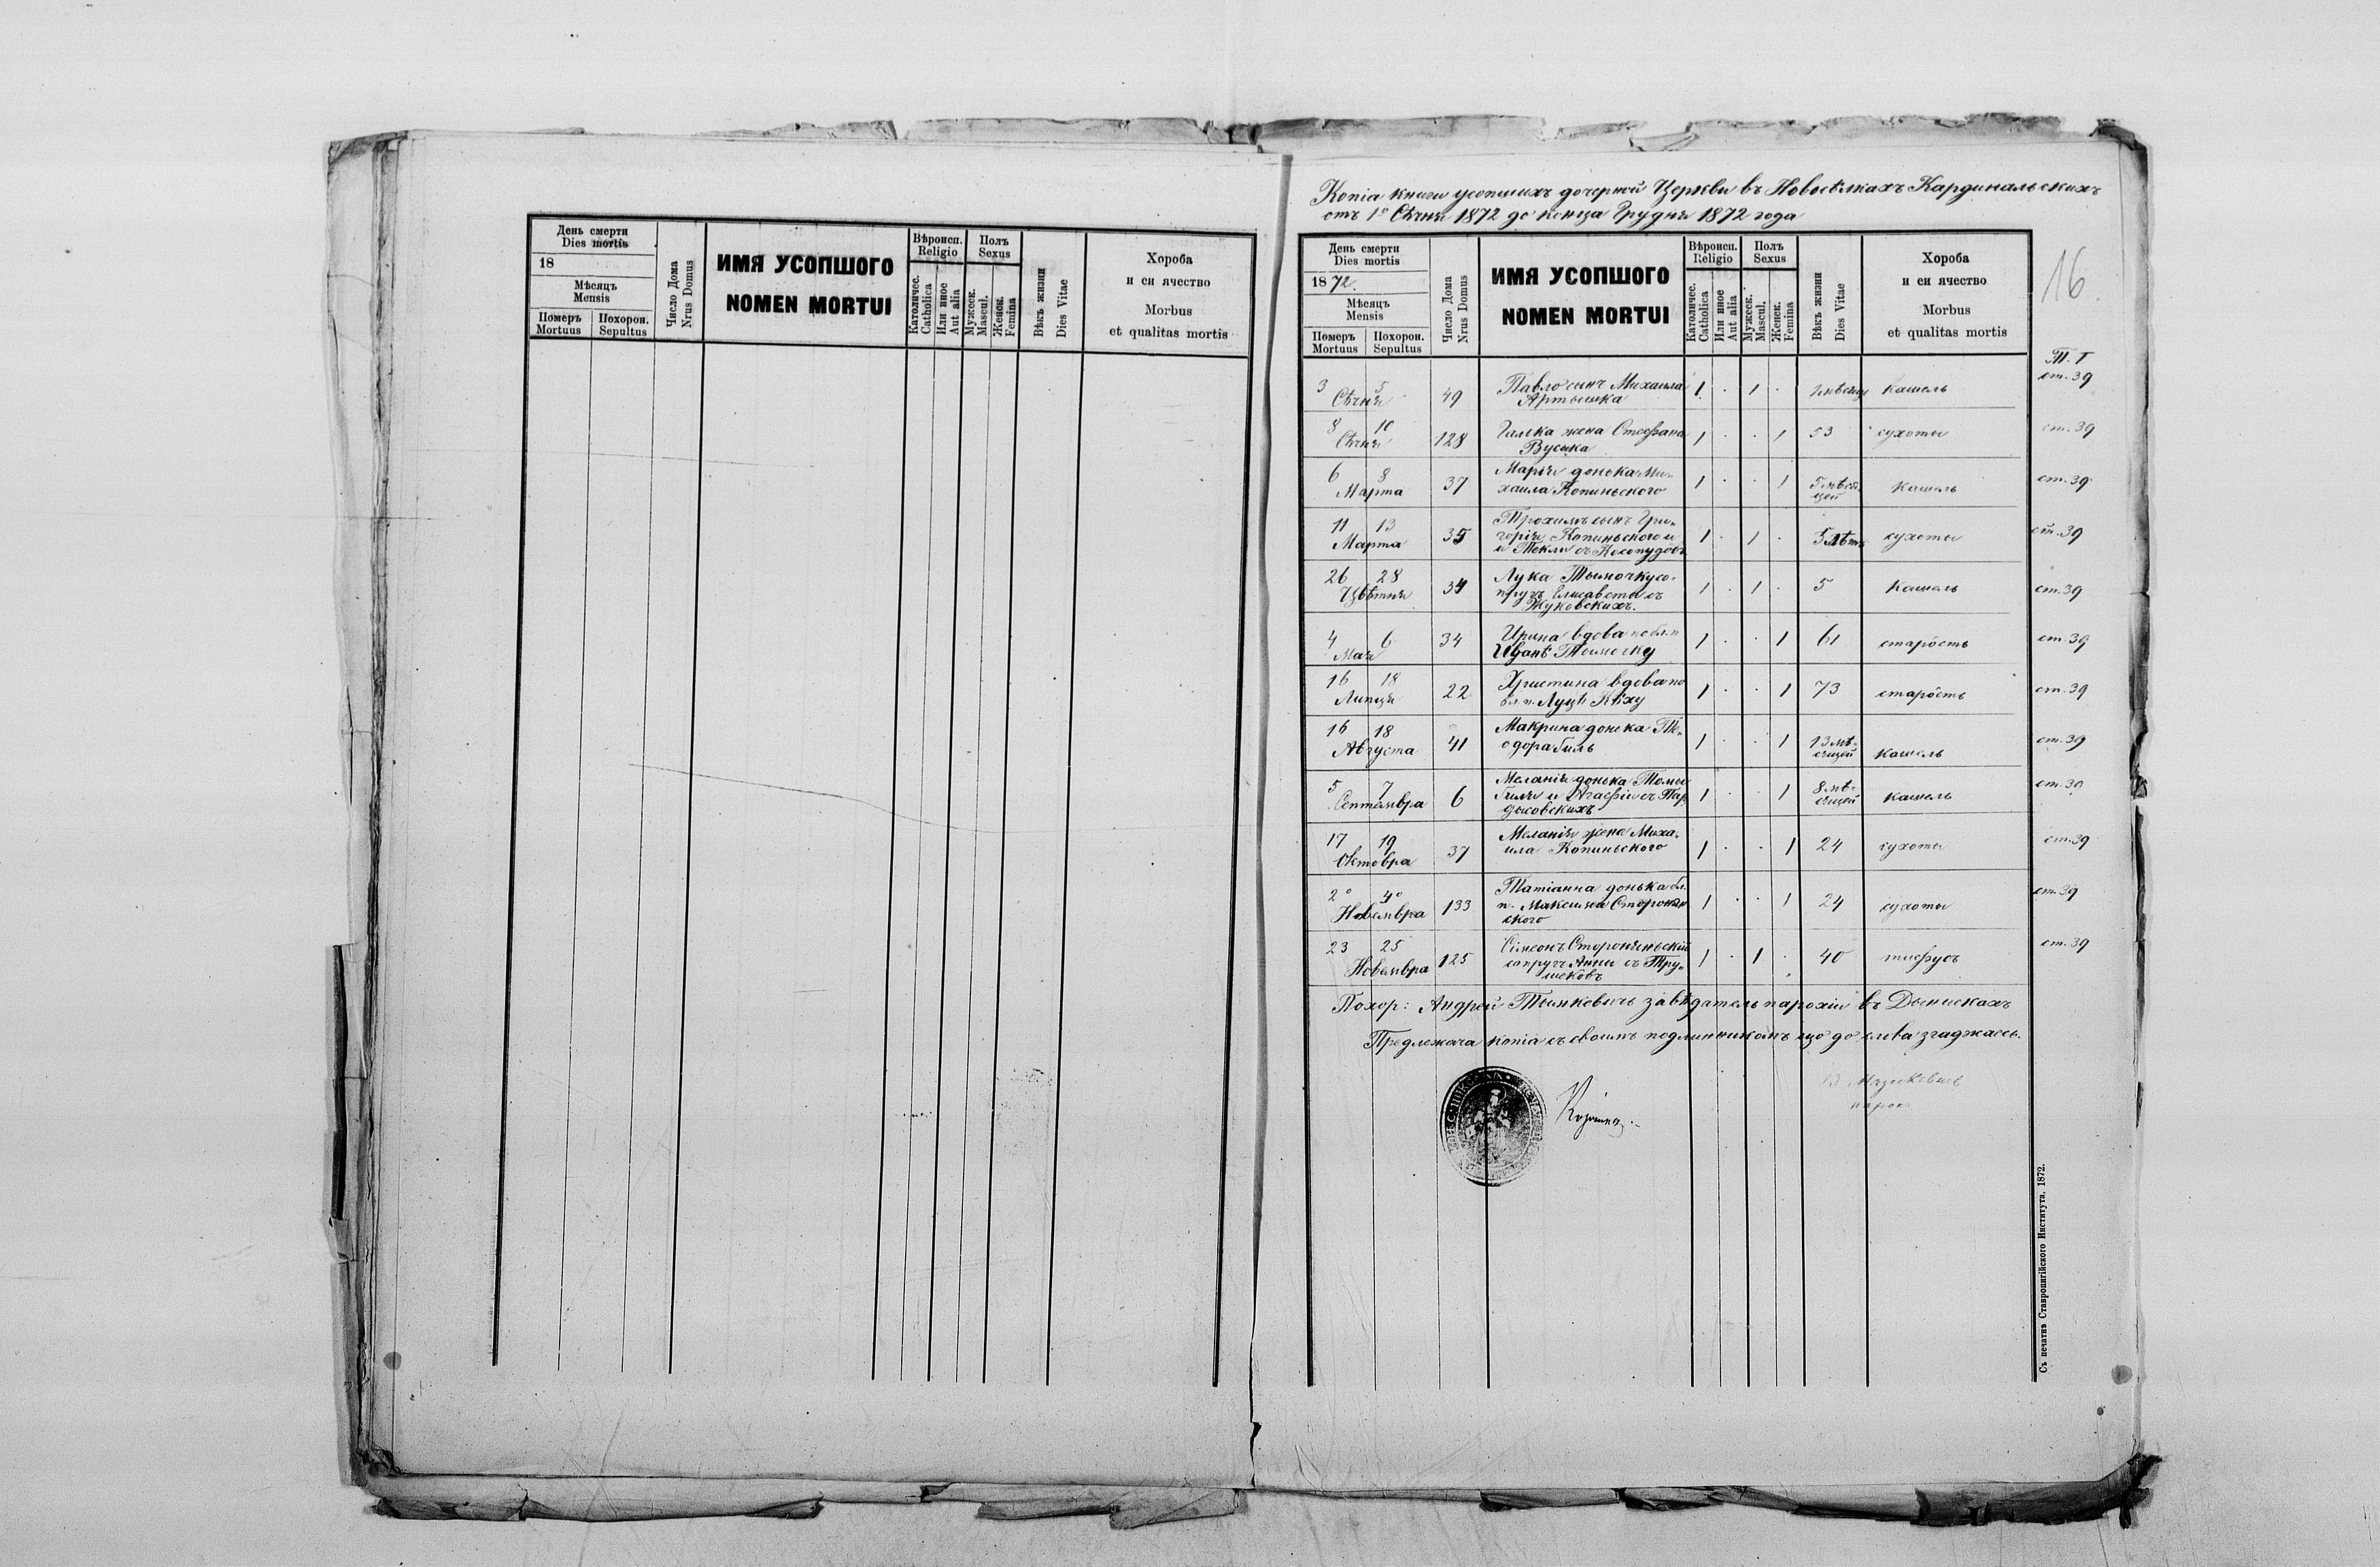 День смерти
Dies mortis
18
Мѣсяцъ
Mensis
Померъ
Mortuus
Похорон.
Sepultus
Число Дома
Nrus Domus
ИМЯ УСОПШОГО
NOMEN MORTUI
Вѣроисп.
Religio
Католичес.
Catholica
Или иное
Aut alia
Полъ
Sexus
Мужеск.
Mascul.
Женск.
Femina
Вѣкъ жизни
Dies Vitae
Хороба
и еи ячество
Morbus
et qualitas mortis
Копіа книги усопшихъ дочерной Церкви въ Новосѣлкахъ Кардинальскихъ
отъ 1º Сѣчня 1872 до конца Грудня 1872 года
16.
День смерти
Dies mortis
1872.
Мѣсяцъ
Mensis
Померъ
Mortuus
Похорон.
Sepultus
Число Дома
Nrus Domus
ИМЯ УСОПШОГО
NOMEN MORTUI
Вѣроисп.
Religio
Католичес.
Catholica
Или иное
Aut alia
Полъ
Sexus
Мужеск.
Mascul.
Женск.
Femina
Вѣкъ жизни
Dies Vitae
Хороба
и еи ячество
Morbus
et qualitas mortis
Т. I
3 5 Павло сынъ Михаила 1 . 1 . кашель ст. 39
Сѣчня 49 Артышка
8 10 жена Стефана 1 . . 1 53 сухоты ст. 39
Сѣчня 128
6 8 Марія донька Ми-
Марта 37 хаила Копиньского 1 . . 1 5 мѣся-
цей кашель ст. 39
11 13 Трохимъ сынъ Гри-
Марта 35 горія Копиньского и 1 . 1 . 5 лѣтъ сухоты ст. 39
и Текли съ
26 28 Лука Тымочко су-
Цвѣтня 34 пругъ Елисаветы съ 1 . 1 . 5 кашель ст. 39
Жуковскихъ.
4 6 Ирина вдова по бл. п. 1 . . 1 61 старость ст. 39
Мая 34 Иванѣ Тымочку
16 18 Христина вдова по 1 . . 1 73 старость ст. 39
Липця 22 бл. п. Луцѣ
16 18 Макрина донька Те-
Августа 41 одора Гиль 1 . . 1 13 мѣ-
сяцей кашель ст. 39
5 7 Меланія донька Томы
Септемвра 6 и Агафіи съ 1 . . 1 8 мѣ-
сяцей кашель ст. 39
17 19 Меланія жена Миха-
Октовра 37 ила Копиньского 1 . . 1 24 сухоты ст. 39
2º 4º Татіанна донька бл.
Новемвра 133 п. Максима Сторонян-
ского 1 . . 1 24 сухоты ст. 39
23 25 Сімеонъ Стороняньскій
Новемвра 125 супругъ Анны съ Тру-
шекôвъ 1 . 1 . 40 тифусъ ст. 39
Похор: Андрей Тынкевичъ завѣдатель парохіи въ Дынискахъ
Предлежача копіа съ своимъ подлинникомъ що до слова згаджаесь.
Съ печатнѣ Ставропигійского Института. 1872.